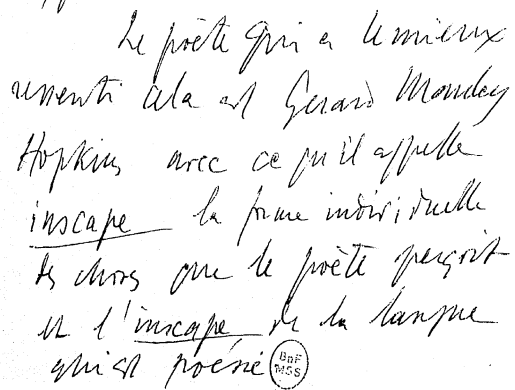 Le poète qui a le mieux
ressenti cela est Gerard Manley
Hopkins avec ce qu'il appelle
inscape la forme individuelle
des choses que le poète perçoit
et l'inscape de la langue
qui est poésie
BnF
MSS